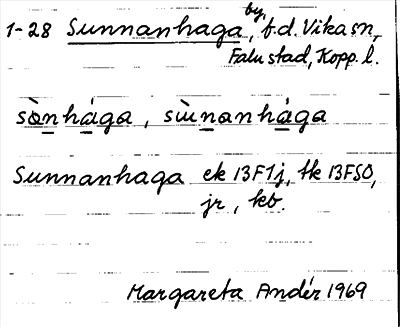 1-28 Sunnanhaga, by, f.d. Vika sn,
Falu stad, Kopp. l.
sònhága, sùnanhága
Sunnanhaga ek 13F1j, tk 13FSO,
jr, kb.
Margareta Andér 1969